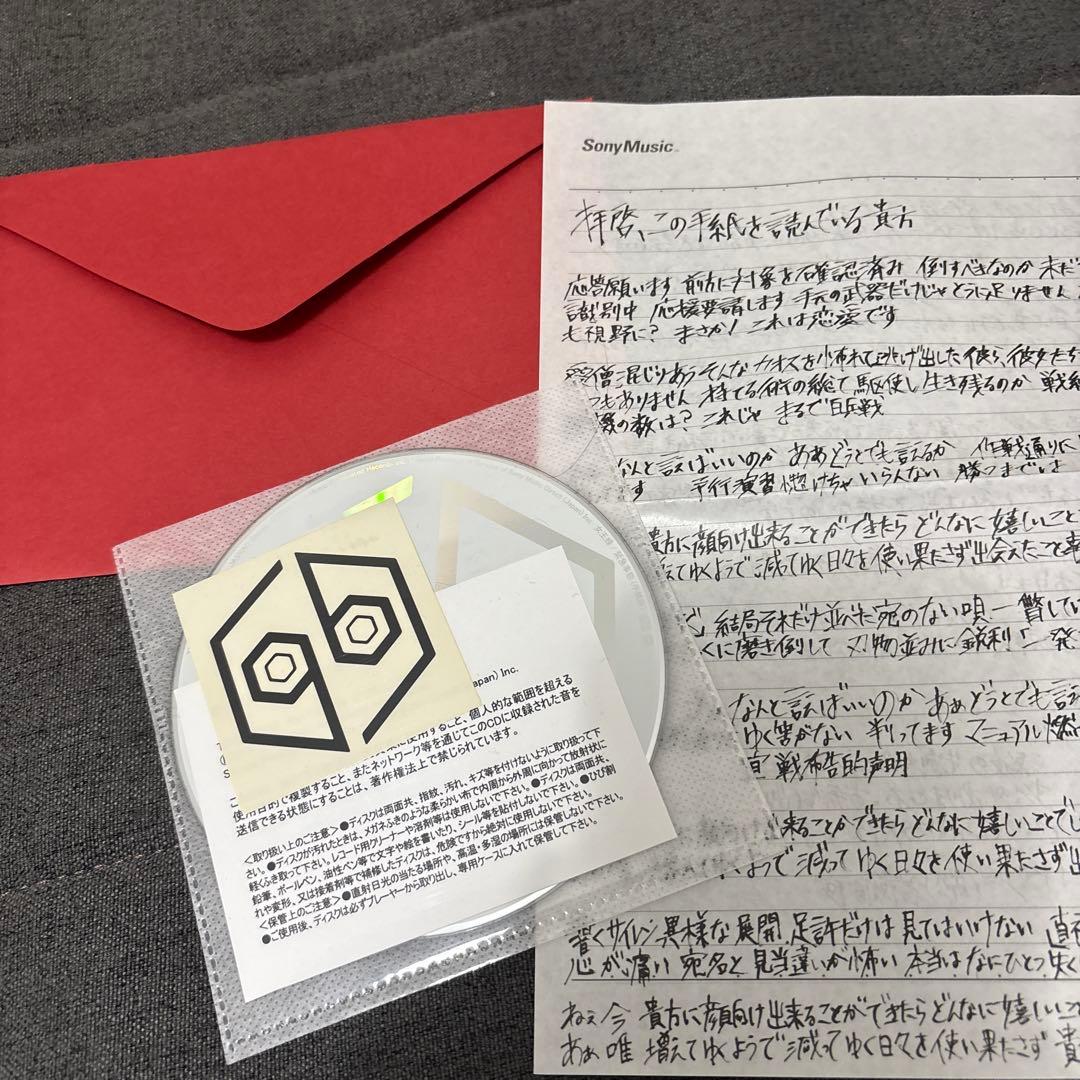 SonyMusic
拝啓、この手紙を読んでいる貴方
応答願います 前方に対象を確認済み 倒すべきなのか 未だ
識別中 応援要請します 手元の武器だけじゃどうにも足りません
も視野に? まさか! これは恋愛です
愛憎混じりあう そんな カオスを怖れて逃げ出した彼ら、彼女たち
つもありません 持てる術の総て駆使し生き残るのか 戦
機の数は? これじゃ まるで白兵戦
なんと言えばいいのか ああどうとでも言えるか 作戦通りに
す 予行演習 惚けちゃいらんない 勝つまでは
貴方に顔向け出来ることができたら どんなに 嬉しいこと
えてゆくようで 減ってゆく日々を 使い果たさず出会えたこと
結局それだけ並べた宛のない唄 一瞥してい
くに磨き倒して 刃物並みに鋭利! 一発
なんと言えばいいのか ああどうとでも言
ゆく筈がない 判ってます マニュアル燃
戦布告的声明
来ることができたら どんなに嬉しいことでし
ようで 減ってゆく日々を 使い果たさず出
響くサイレン 異様な展開 足許だけは見てはいけない 直
心が痛い 宛名と見当違いが怖い 本当はなにひとつ失く
ねぇ今 貴方に顔向け出来ることができたら どんなに嬉しいこと
ああ唯 増えてゆくようで 減ってゆく日々を使い果たさず 貴
apan) Inc.
に使用すること、個人的な範囲を超える
使用目的で複製すること、またネットワーク等を通じてこのCDに収録された音を
送信できる状態にすることは、著作権法上で禁じられています。
<取り扱い上のご注意>●ディスクは両面共、指紋、汚れ、キズ等を付けないように取り扱って下
さい。●ディスクが汚れたときは、メガネふきのような柔らかい布で内周から外周に向かって放射状に
軽くふき取って下さい。レコード用クリーナーや溶剤等は使用しないで下さい。●ディスクは両面共、
鉛筆、ボールペン、油性ペン等で文字や絵を書いたり、シール等を貼付しないで下さい。●ひび割
れや変形、又は接着剤等で補修したディスクは、危険ですから絶対に使用しないで下さい。
<保管上のご注意>●直射日光の当たる場所や、高温・多湿の場所には保管しないで下さい。
●ご使用後、ディスクは必ずプレーヤーから取り出し、専用ケースに入れて保管して下さい。